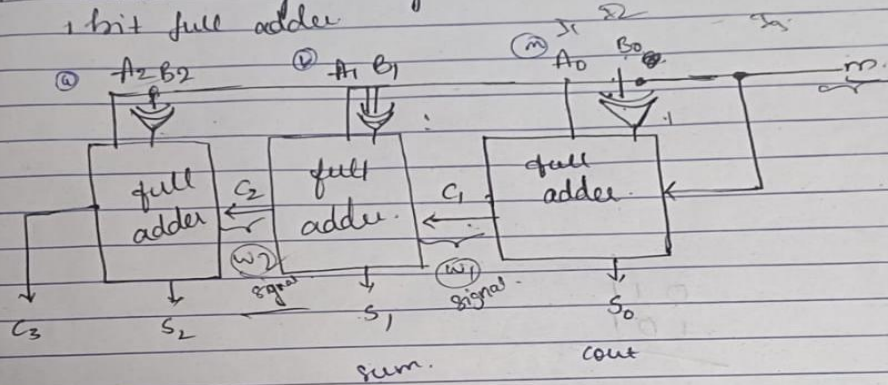 1 bit full adder
A2 B2 A1 B1 A0 B0 m.
full adder
C2
full adder.
C1
full adder.
w2
signal
w1
signal.
C3 S2 S1 S0
sum. cout